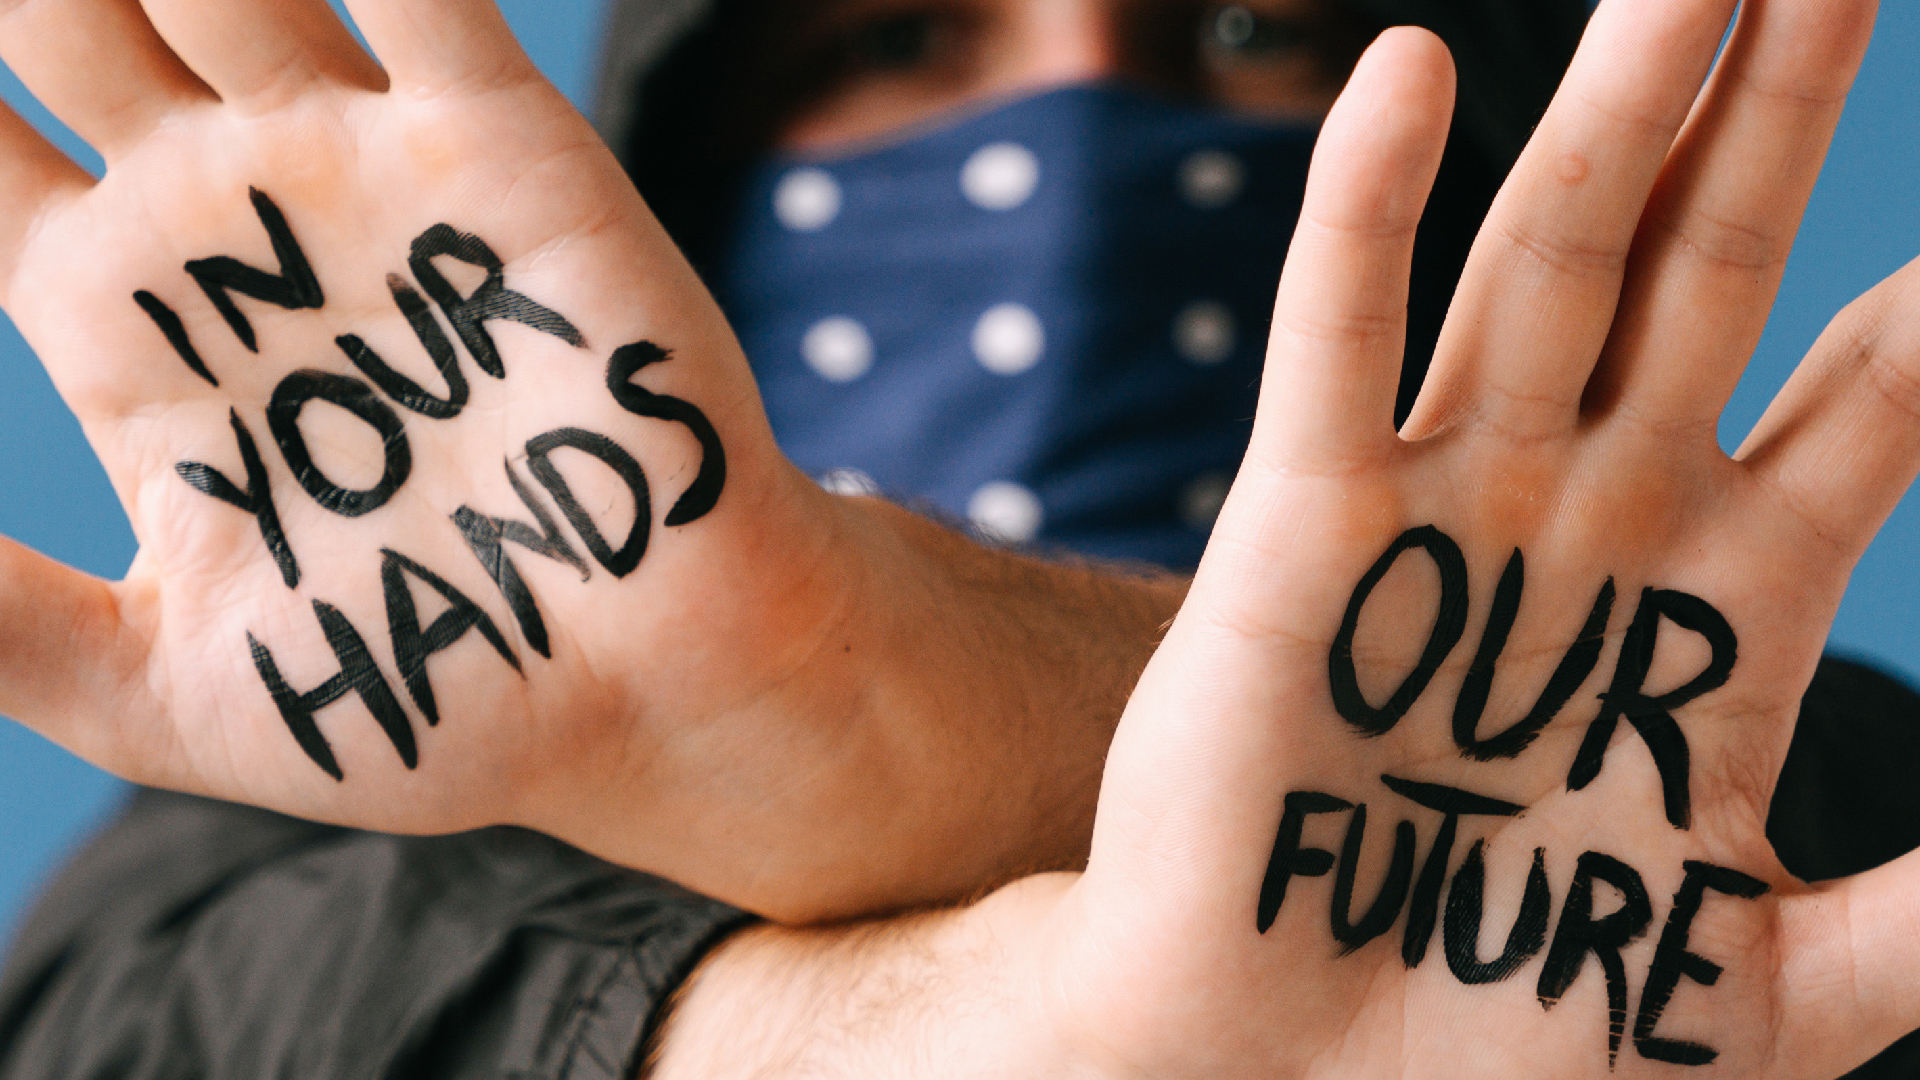 IN
YOUR
HANDS
OUR
FUTURE